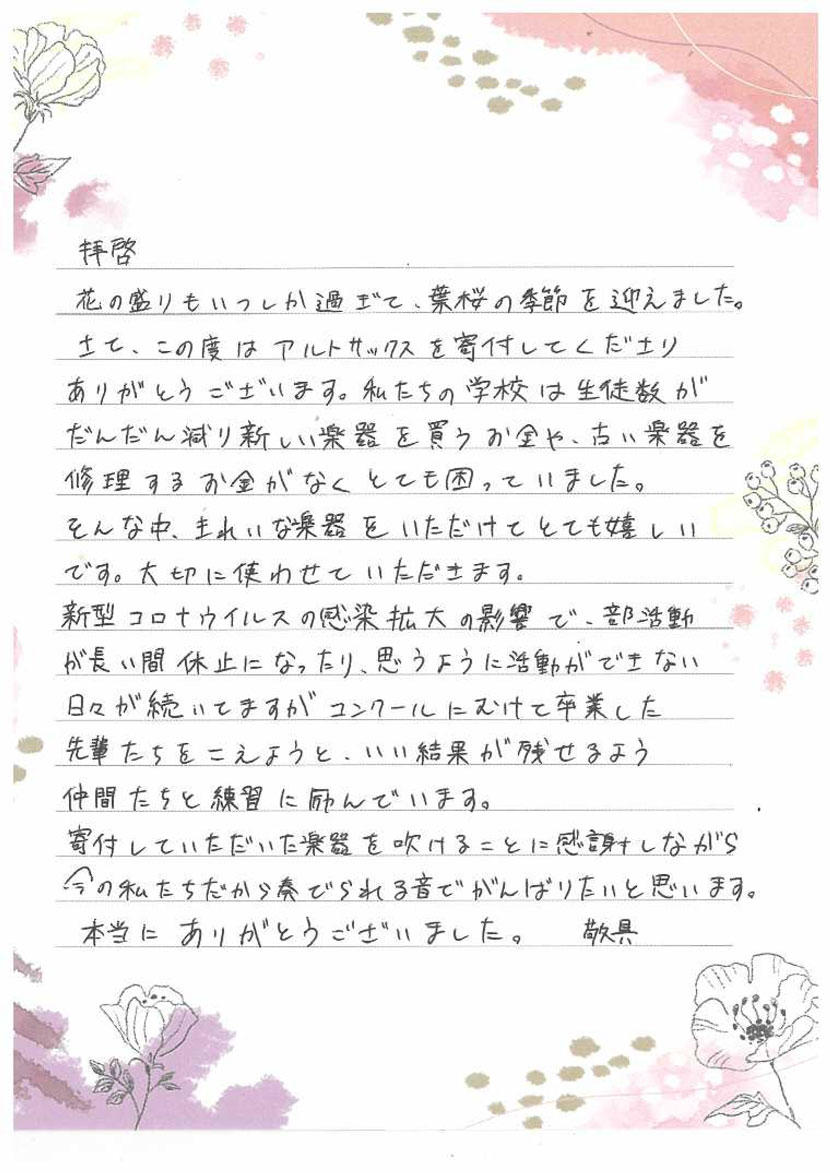 拝啓
花の盛りもいつしか過ぎて、葉桜の季節を迎えました。
さて、この度はアルトサックスを寄付してくださり
ありがとうございます。私たちの学校は生徒数が
だんだん減り新しい楽器を買うお金や、古い楽器を
修理するお金がなくとても困っていました。
そんな中、きれいな楽器をいただけてとても嬉しい
です。大切に使わせていただきます。
新型コロナウイルスの感染拡大の影響で、部活動
が長い間休止になったり、思うように活動ができない
日々が続いてますがコンクールにむけて卒業した
先輩たちをこえようと、いい結果が残せるよう
仲間たちと練習に励んでいます。
寄付していただいた楽器を吹けることに感謝しながら
今の私たちだから奏でられる音でがんばりたいと思います。
本当にありがとうございました。 敬具